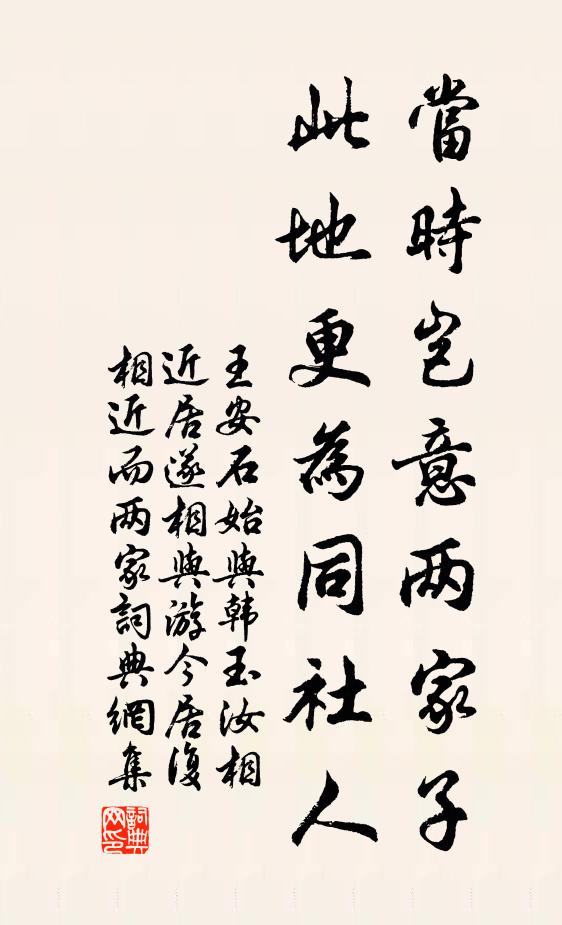 當時岂意两家子
此地更為同社人
王安石始與韩玉汝相
近居遂相與游今居復
相近而两家詞典網集
詞典
网印